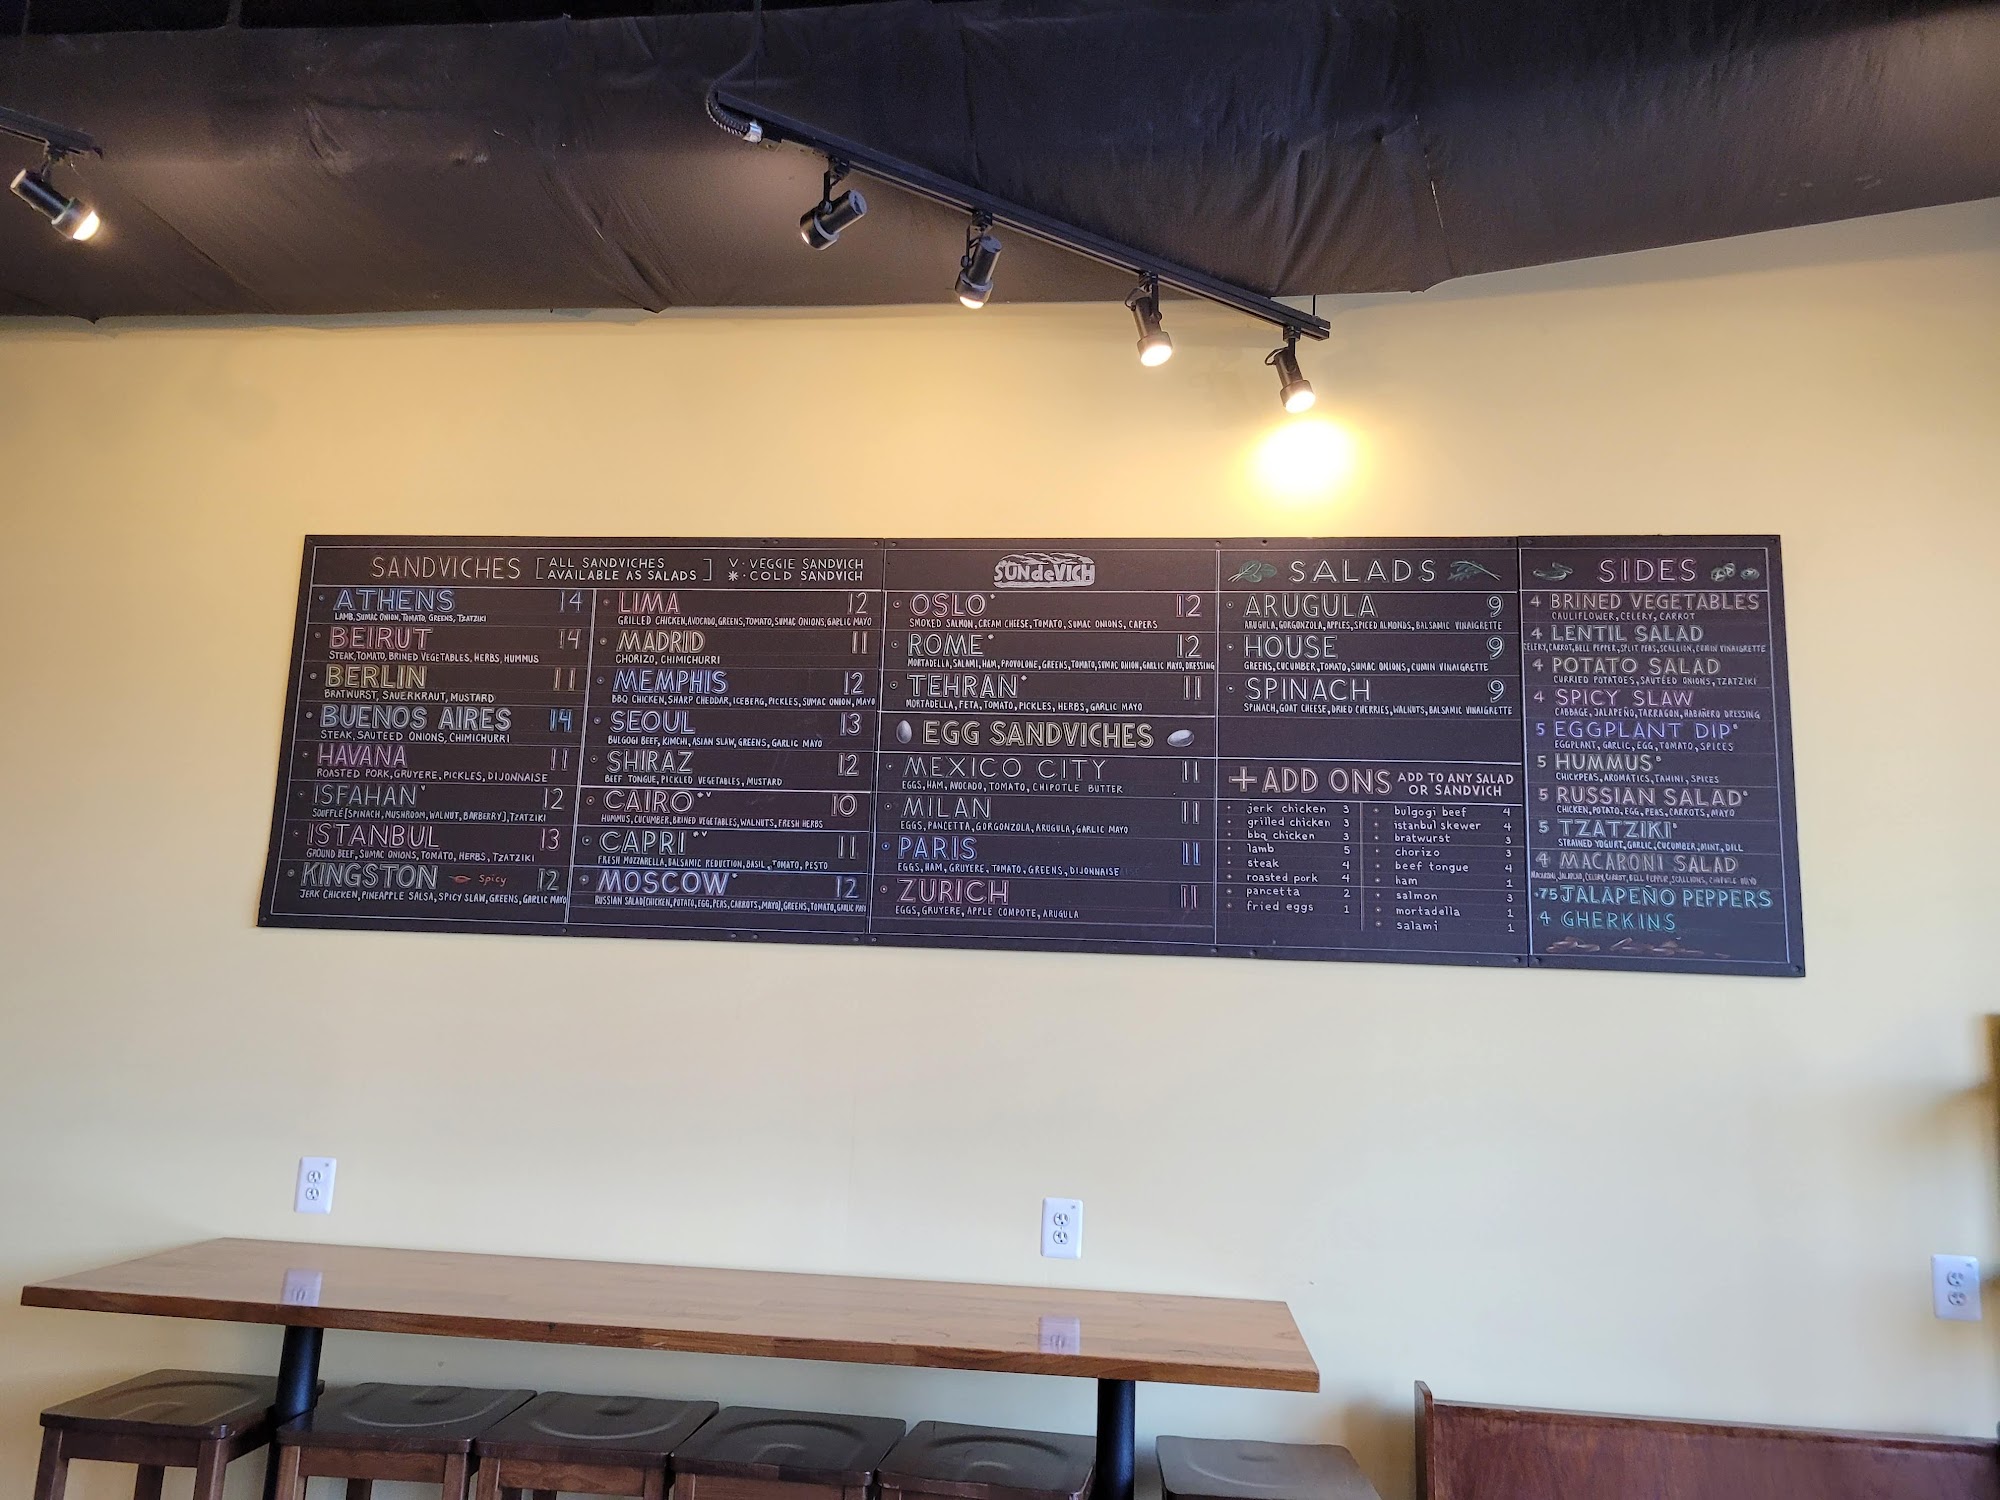 SANDVICHES
[ALL SANDVICHES
AVAILABLE AS SALADS]
V · VEGGIE SANDVICH
* · COLD SANDVICH
ATHENS 14
LAMB, SUMAC ONION, TOMATO, GREENS, TZATZIKI
BEIRUT 14
STEAK, TOMATO, BRINED VEGETABLES, HERBS, HUMMUS
BERLIN 11
BRATWURST, SAUERKRAUT, MUSTARD
BUENOS AIRES 14
STEAK, SAUTEED ONIONS, CHIMICHURRI
HAVANA 11
ROASTED PORK, GRUYERE, PICKLES, DIJONNAISE
ISFAHAN V 12
SOUFFLÉ [SPINACH, MUSHROOM, WALNUT, BARBERRY], TZATZIKI
ISTANBUL 13
GROUND BEEF, SUMAC ONIONS, TOMATO, HERBS, TZATZIKI
KINGSTON Spicy 12
JERK CHICKEN, PINEAPPLE SALSA, SPICY SLAW, GREENS, GARLIC MAYO
LIMA 12
GRILLED CHICKEN, AVOCADO, GREENS, TOMATO, SUMAC ONIONS, GARLIC MAYO
MADRID 11
CHORIZO, CHIMICHURRI
MEMPHIS 12
BBQ CHICKEN, SHARP CHEDDAR, ICEBERG, PICKLES, SUMAC ONION, MAYO
SEOUL 13
BULGOGI BEEF, KIMCHI, ASIAN SLAW, GREENS, GARLIC MAYO
SHIRAZ 12
BEEF TONGUE, PICKLED VEGETABLES, MUSTARD
CAIRO *V 10
HUMMUS, CUCUMBER, BRINED VEGETABLES, WALNUTS, FRESH HERBS
CAPRI *V 11
FRESH MOZZARELLA, BALSAMIC REDUCTION, BASIL, TOMATO, PESTO
MOSCOW* 12
RUSSIAN SALAD [CHICKEN, POTATO, EGG, PEAS, CARROTS, MAYO], GREENS, TOMATO, GARLIC MAYO
SUNdeVICH
OSLO* 12
SMOKED SALMON, CREAM CHEESE, TOMATO, SUMAC ONIONS, CAPERS
ROME* 12
MORTADELLA, SALAMI, HAM, PROVOLONE, GREENS, TOMATO, SUMAC ONION, GARLIC MAYO, DRESSING
TEHRAN* 11
MORTADELLA, FETA, TOMATO, PICKLES, HERBS, GARLIC MAYO
EGG SANDVICHES
MEXICO CITY 11
EGGS, HAM, AVOCADO, TOMATO, CHIPOTLE BUTTER
MILAN 11
EGGS, PANCETTA, GORGONZOLA, ARUGULA, GARLIC MAYO
PARIS 11
EGGS, HAM, GRUYERE, TOMATO, GREENS, DIJONNAISE
ZURICH 11
EGGS, GRUYERE, APPLE COMPOTE, ARUGULA
SALADS
ARUGULA 9
ARUGULA, GORGONZOLA, APPLES, SPICED ALMONDS, BALSAMIC VINAIGRETTE
HOUSE 9
GREENS, CUCUMBER, TOMATO, SUMAC ONIONS, CUMIN VINAIGRETTE
SPINACH 9
SPINACH, GOAT CHEESE, DRIED CHERRIES, WALNUTS, BALSAMIC VINAIGRETTE
+ADD ONS ADD TO ANY SALAD
OR SANDVICH
jerk chicken 3
grilled chicken 3
bbq chicken 3
lamb 5
steak 4
roasted pork 4
pancetta 2
fried eggs 1
bulgogi beef 4
istanbul skewer 4
bratwurst 3
chorizo 3
beef tongue 4
ham 1
salmon 3
mortadella 1
salami 1
SIDES
4 BRINED VEGETABLES
CAULIFLOWER, CELERY, CARROT
4 LENTIL SALAD
CELERY, CARROT, BELL PEPPER, SPLIT PEAS, SCALLION, CUMIN VINAIGRETTE
4 POTATO SALAD
CURRIED POTATOES, SAUTÉED ONIONS, TZATZIKI
4 SPICY SLAW
CABBAGE, JALAPEÑO, TARRAGON, HABAÑERO DRESSING
5 EGGPLANT DIP*
EGGPLANT, GARLIC, EGG, TOMATO, SPICES
5 HUMMUS*
CHICKPEAS, AROMATICS, TAHINI, SPICES
5 RUSSIAN SALAD*
CHICKEN, POTATO, EGG, PEAS, CARROTS, MAYO
5 TZATZIKI*
STRAINED YOGURT, GARLIC, CUCUMBER, MINT, DILL
4 MACARONI SALAD
MACARONI, JALAPEÑO, CELERY, CARROT, BELL PEPPER, SCALLIONS, CHIPOTLE MAYO
.75 JALAPEÑO PEPPERS
4 GHERKINS